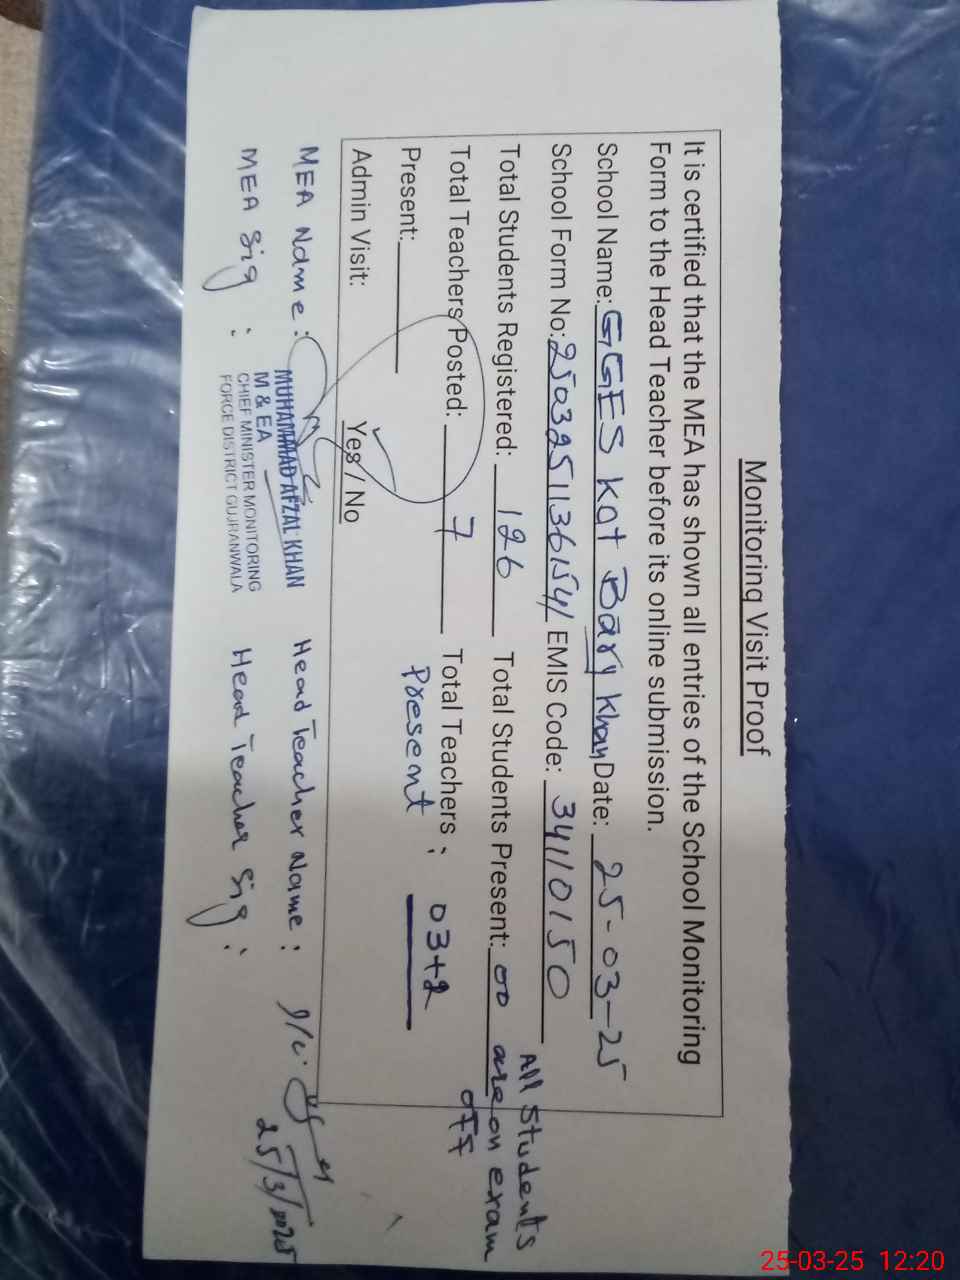 Monitoring Visit Proof
It is certified that the MEA has shown all entries of the School Monitoring
Form to the Head Teacher before its online submission.
School Name: GGES Kot Bary Khan Date: 25-03-25
School Form No: EMIS Code: 34110150
Total Students Registered: 126 Total Students Present: 00 All Students
are on exam
off
Total Teachers Posted: 7 Total Teachers : 03+2
Present: Present
Admin Visit: Yes / No
MEA Name : MUHAMMAD AFZAL KHAN Head Teacher Name :
M & EA
MEA Sig : CHIEF MINISTER MONITORING Head Teacher Sig :
FORCE DISTRICT GUJRANWALA
25/3/2025
25-03-25 12:20